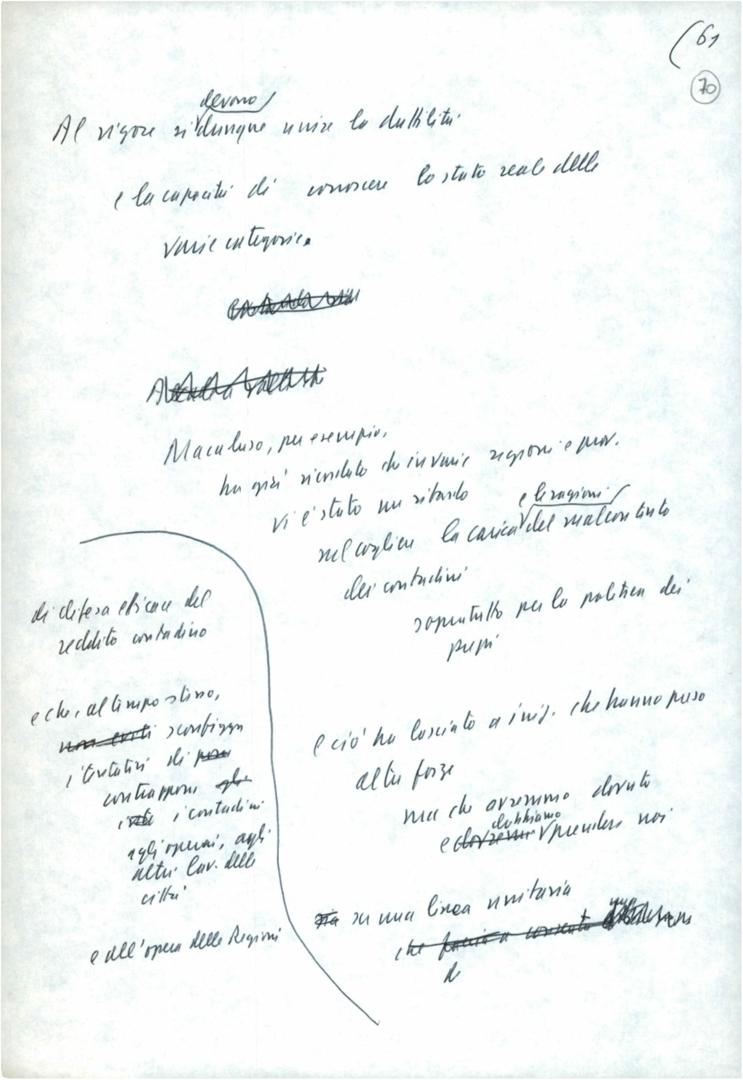 (61
70
devono
Al rigore si dunque unire la duttilità
e la capacità di conoscere lo stato reale delle
varie categorie.
Macaluso, per esempio,
ha già ricordato che in varie regioni e prov.
vi è stato un ritardo
e le ragioni
nel cogliere la carica del malcontento
dei contadini
soprattutto per la politica dei
prezzi
e ciò ha lasciato a iniz. che hanno preso
altre forze
ma che avremmo dovuto
dobbiamo
e dovremo prendere noi
su una linea unitaria
che faccia
di
di difesa efficace del
reddito contadino
e che, al tempo stesso,
non eviti sconfigga
i tentativi di
contrapporre
i contadini
agli operai, agli
altri lav. delle
città
e all'opera delle Regioni